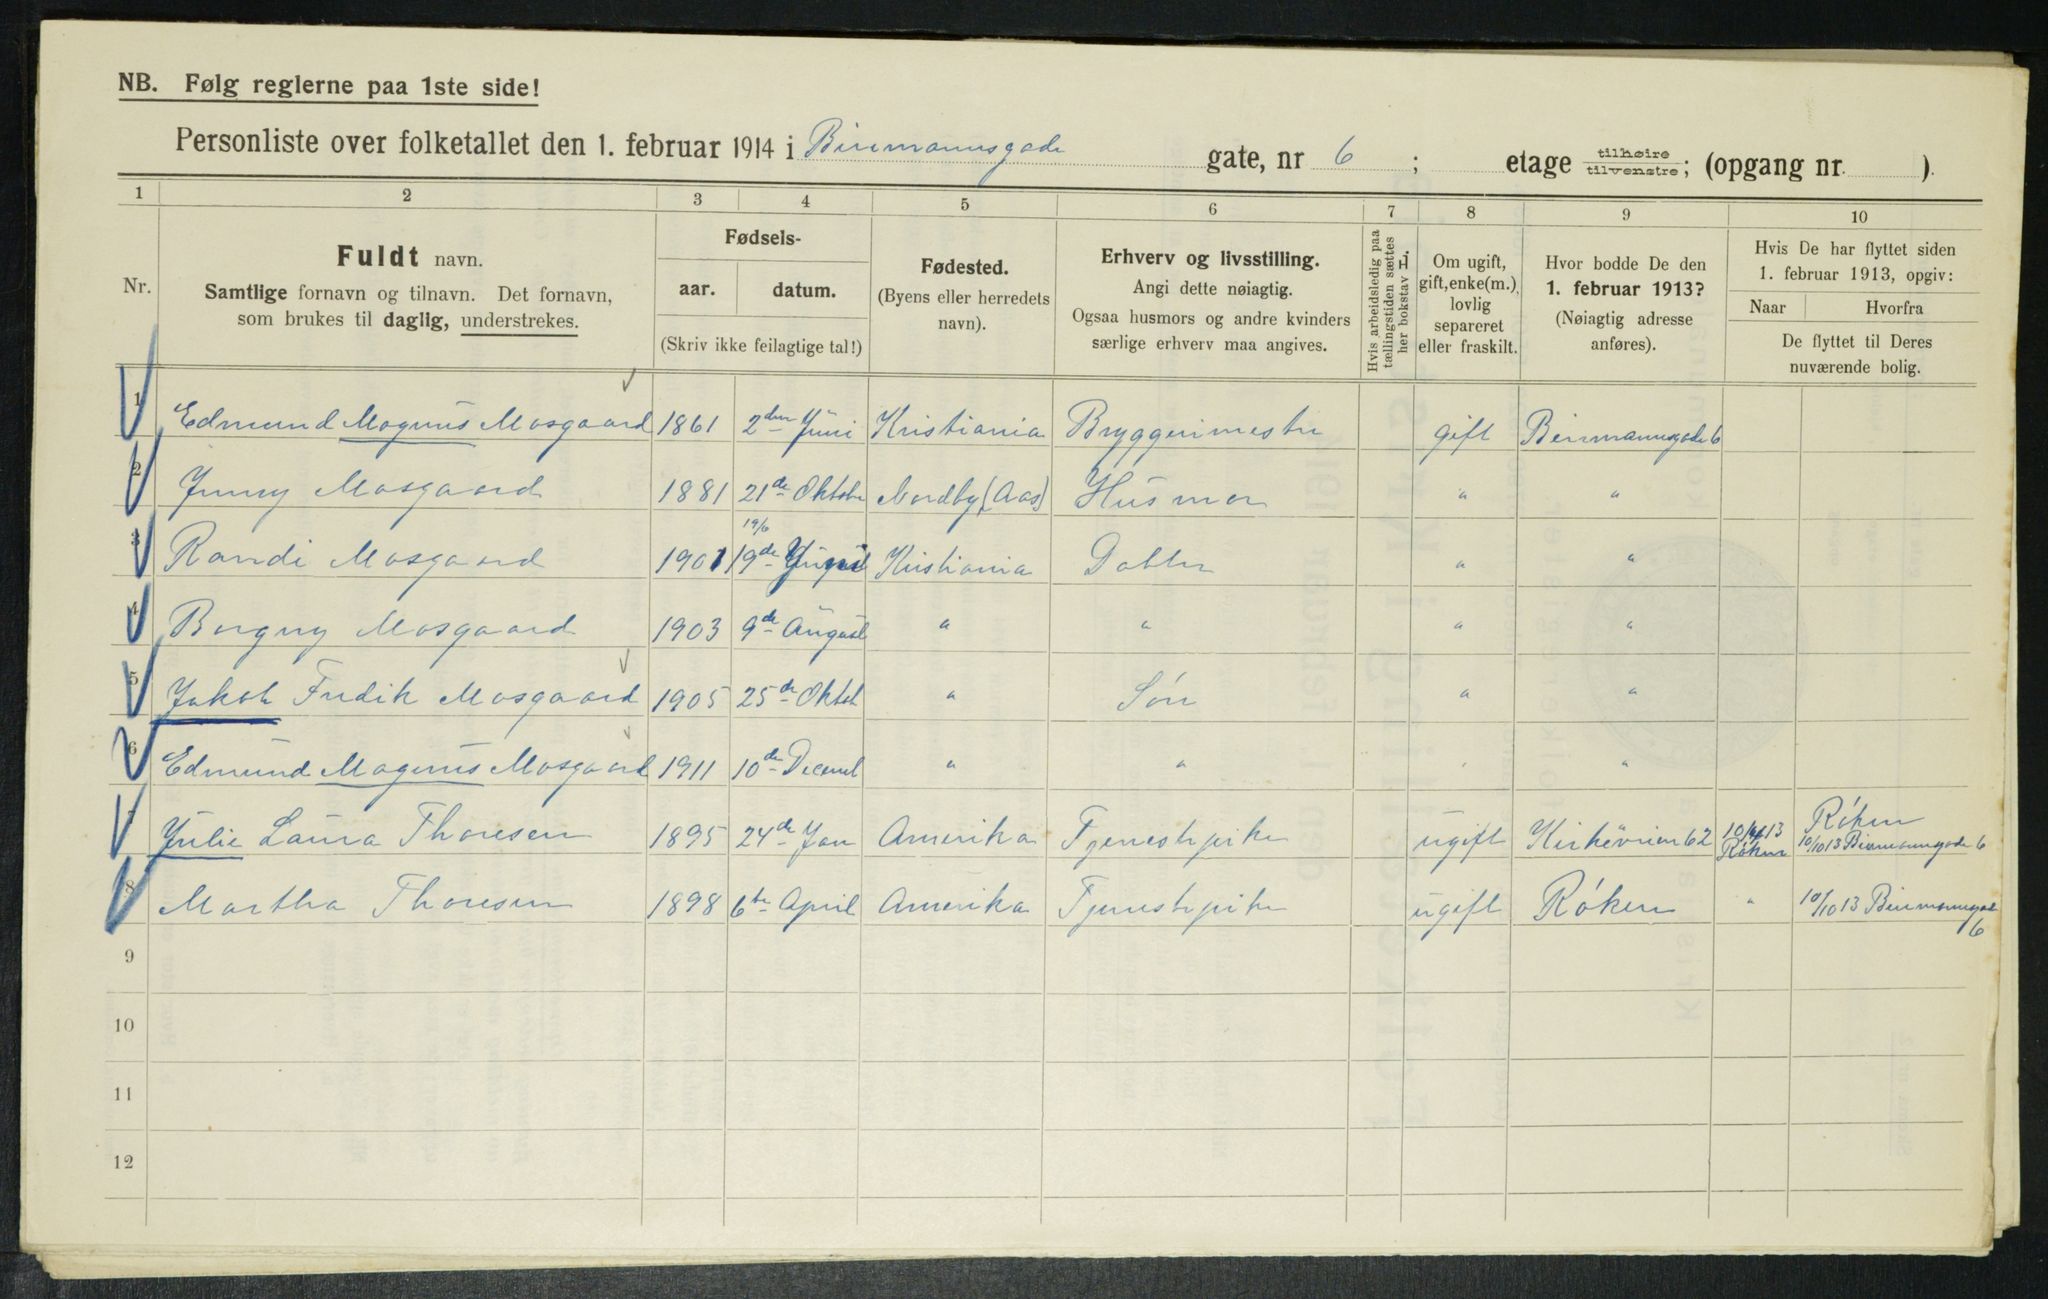 NB. Følg reglerne paa 1ste side!
Personliste over folketallet den 1. februar 1914 i Biermannsgade gate, nr 6 ; etage tilhøire/tilvenstre; (opgang nr. ).
1 2 3 4 5 6 7 8 9 10
Nr.
Fuldt navn.
Samtlige fornavn og tilnavn. Det fornavn,
som brukes til daglig, understrekes.
Fødsels-
aar. datum.
(Skriv ikke feilagtige tal!)
Fødested.
(Byens eller herredets
navn).
Erhverv og livsstilling.
Angi dette nøiagtig.
Ogsaa husmors og andre kvinders
særlige erhverv maa angives.
Hvis arbeidsledig paa
tællingstiden sættes
her bokstav L.
Om ugift,
gift, enke(m.),
lovlig
separeret
eller fraskilt.
Hvor bodde De den
1. februar 1913?
(Nøiagtig adresse
anføres).
Hvis De har flyttet siden
1. februar 1913, opgiv:
Naar Hvorfra
De flyttet til Deres
nuværende bolig.
1 Edmund Magnus Mosgaard 1861 2den Juni Kristiania Bryggerimester gift Biermannsgade 6
2 Jenny Mosgaard 1881 21de Oktobr Nordby (Aas) Husmor " "
19/6
3 Randi Mosgaard 1901 19de Juni Kristiania Datter " "
4 Borgny Mosgaard 1903 9de August " " " "
5 Jakob Fredik Mosgaard 1905 25de Oktob " Søn " "
6 Edmund Magnus Mosgaard 1911 10de Decemb " " " "
7 Julie Laura Thoresen 1895 24de Jan Amerika Tjenestepike ugift Kirkeveien 62 13 Røken Røken
10/10 13 Biermannsgade 6
8 Martha Thoresen 1898 6te April Amerika Tjenestepike ugift Røken " 10/10 13 Biermannsgade
6
9
10
11
12